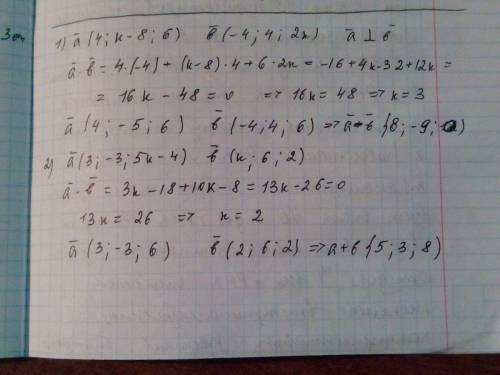 1) a̅ (4; к-8; 6) b̅ (-4; 4; 2к) a̅ ⊥ b̅
a̅·b̅ = 4·(-4) + (к-8)·4 + 6·2к = -16 + 4к - 32 + 12к =
= 16к - 48 = 0 => 16к = 48 => к = 3
a̅ (4; -5; 6) b̅ (-4; 4; 6) => a̅-b̅ {8; -9; 0)
2) a̅ (3; -3; 5к-4) b̅ (к; 6; 2)
a̅·b̅ = 3к - 18 + 10к - 8 = 13к - 26 = 0
13к = 26 => к = 2
a̅ (3; -3; 6) b̅ (2; 6; 2) => a+b {5; 3; 8)